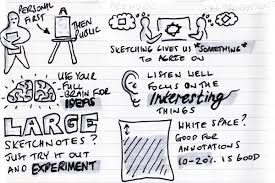 PERSONAL
FIRST
THEN
PUBLIC
SKETCHING GIVES US "SOMETHING"
TO AGREE ON
USE YOUR
FULL
BRAIN FOR
IDEAS
LISTEN WELL
FOCUS ON THE
Interesting
THINGS
LARGE
SKETCHNOTES?
JUST TRY IT OUT
AND EXPERIMENT
WHITE SPACE?
GOOD FOR
ANNOTATIONS
10-20% IS GOOD